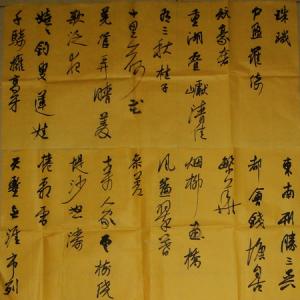 東南形勝三吴
都會錢塘自古
繁華
烟柳畫橋
風簾翠幕
參差
十萬人家雲樹繞
堤沙怒濤
捲霜雪
天塹無涯市列
珠璣
户盈羅綺
競豪奢
重湖叠巘清佳
有三秋桂子
十里荷花
羌管弄晴菱
歌泛夜
嬉嬉釣叟蓮娃
千騎擁高牙